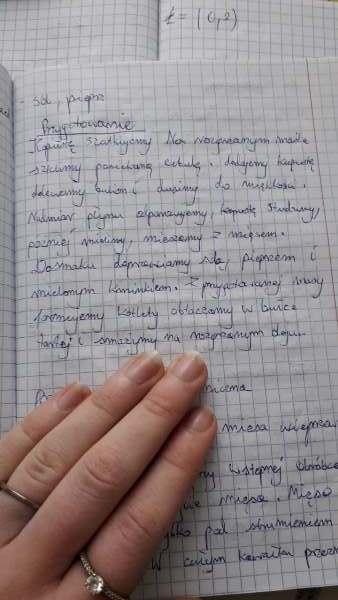 t = (0,2)
- sól, pieprz
Przygotowanie
Kapustę szatkujemy Na rozgrzanym maśle
szklimy posiekaną cebulę. dodajemy kapustę
dolewamy bulion i dusimy do miękkości.
Nadmiar płynu odparowujemy, kapustę studzimy,
mielimy, mieszamy z mięsem.
Do smaku doprawiamy solą, pieprzem i
mielonym kminkiem. Z przygotowanej masy
formujemy kotlety obtaczamy w bułce
tartej i smażymy na rozgrzanym oleju.
mięsa wieprzo
wstępnej obróbce
mięsa. Mięso
pod strumieniem
w całym kawałku przez